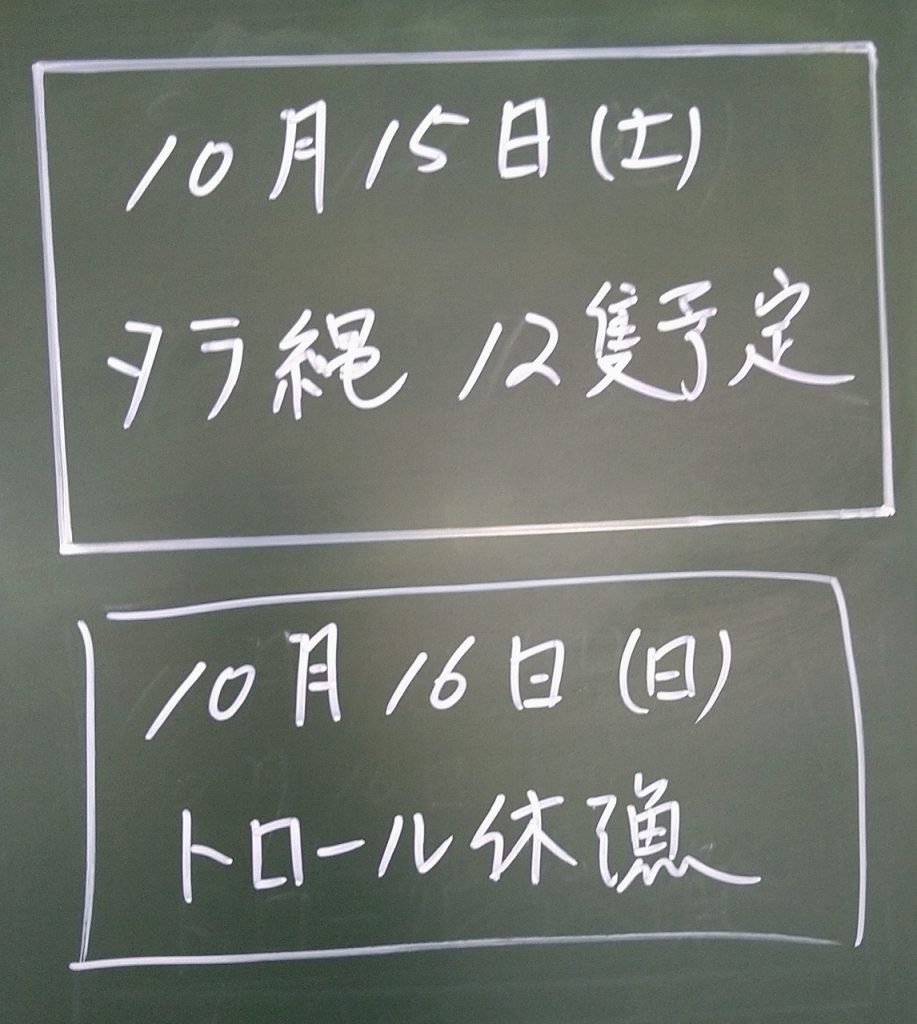 10月15日(土)
タラ縄 12隻予定
10月16日(日)
トロール休漁